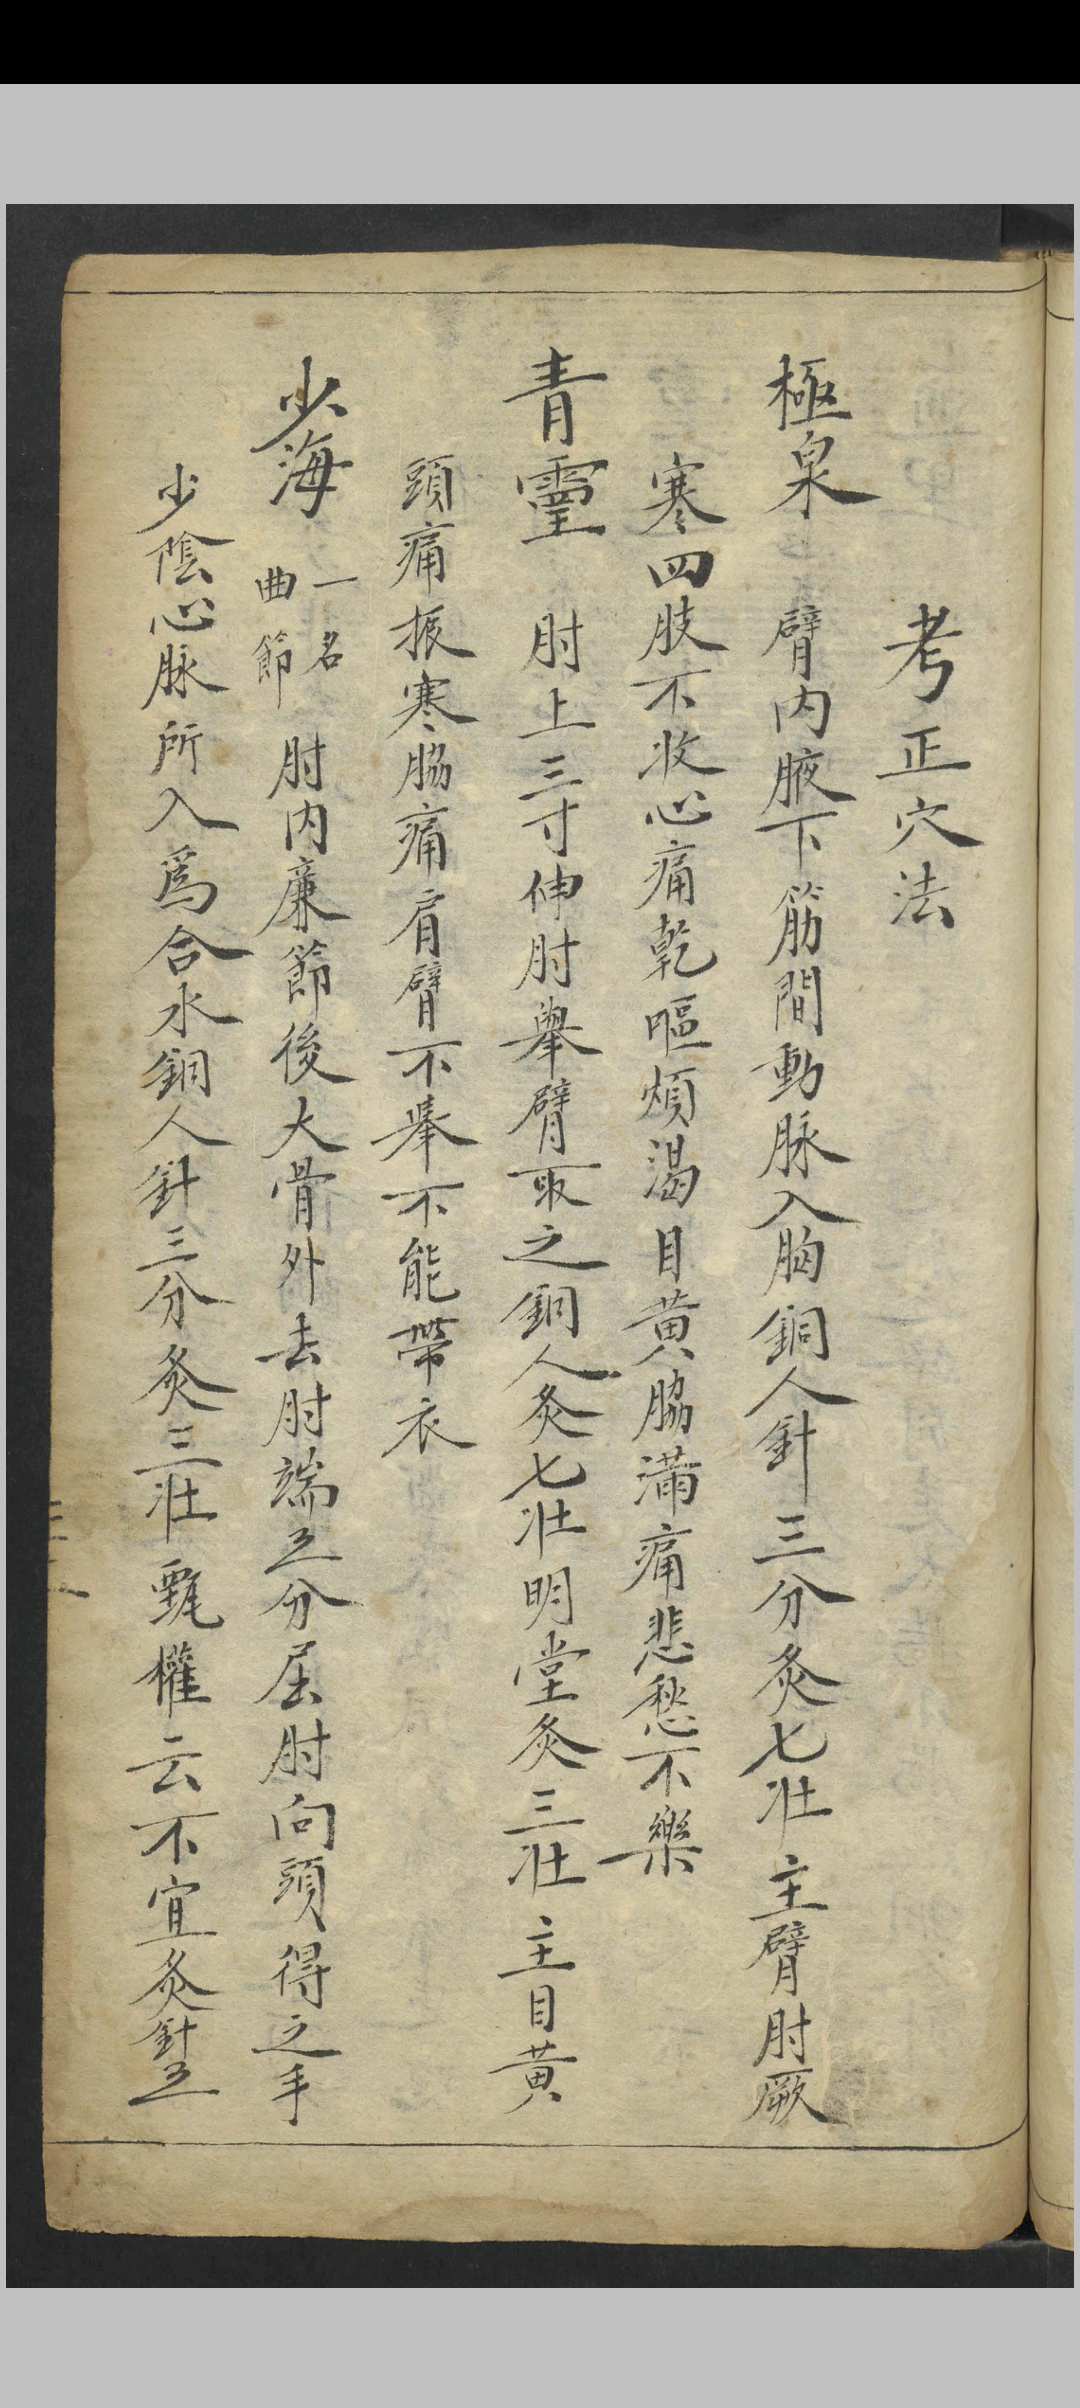 考正穴法
極泉 臂内腋下筋間動脉入胸銅人針三分灸七壯主臂肘厥
寒四肢不收心痛乾嘔煩渴目黄脇滿痛悲愁不樂
青靈 肘上三寸伸肘舉臂取之銅人灸七壯明堂灸三壯主目黄
頭痛振寒脇痛肩臂不舉不能帶衣
少海 一名曲節 肘内廉節後大骨外去肘端五分屈肘向頭得之手
少陰心脉所入爲合水銅人針三分灸三壯甄權云不宜灸針五